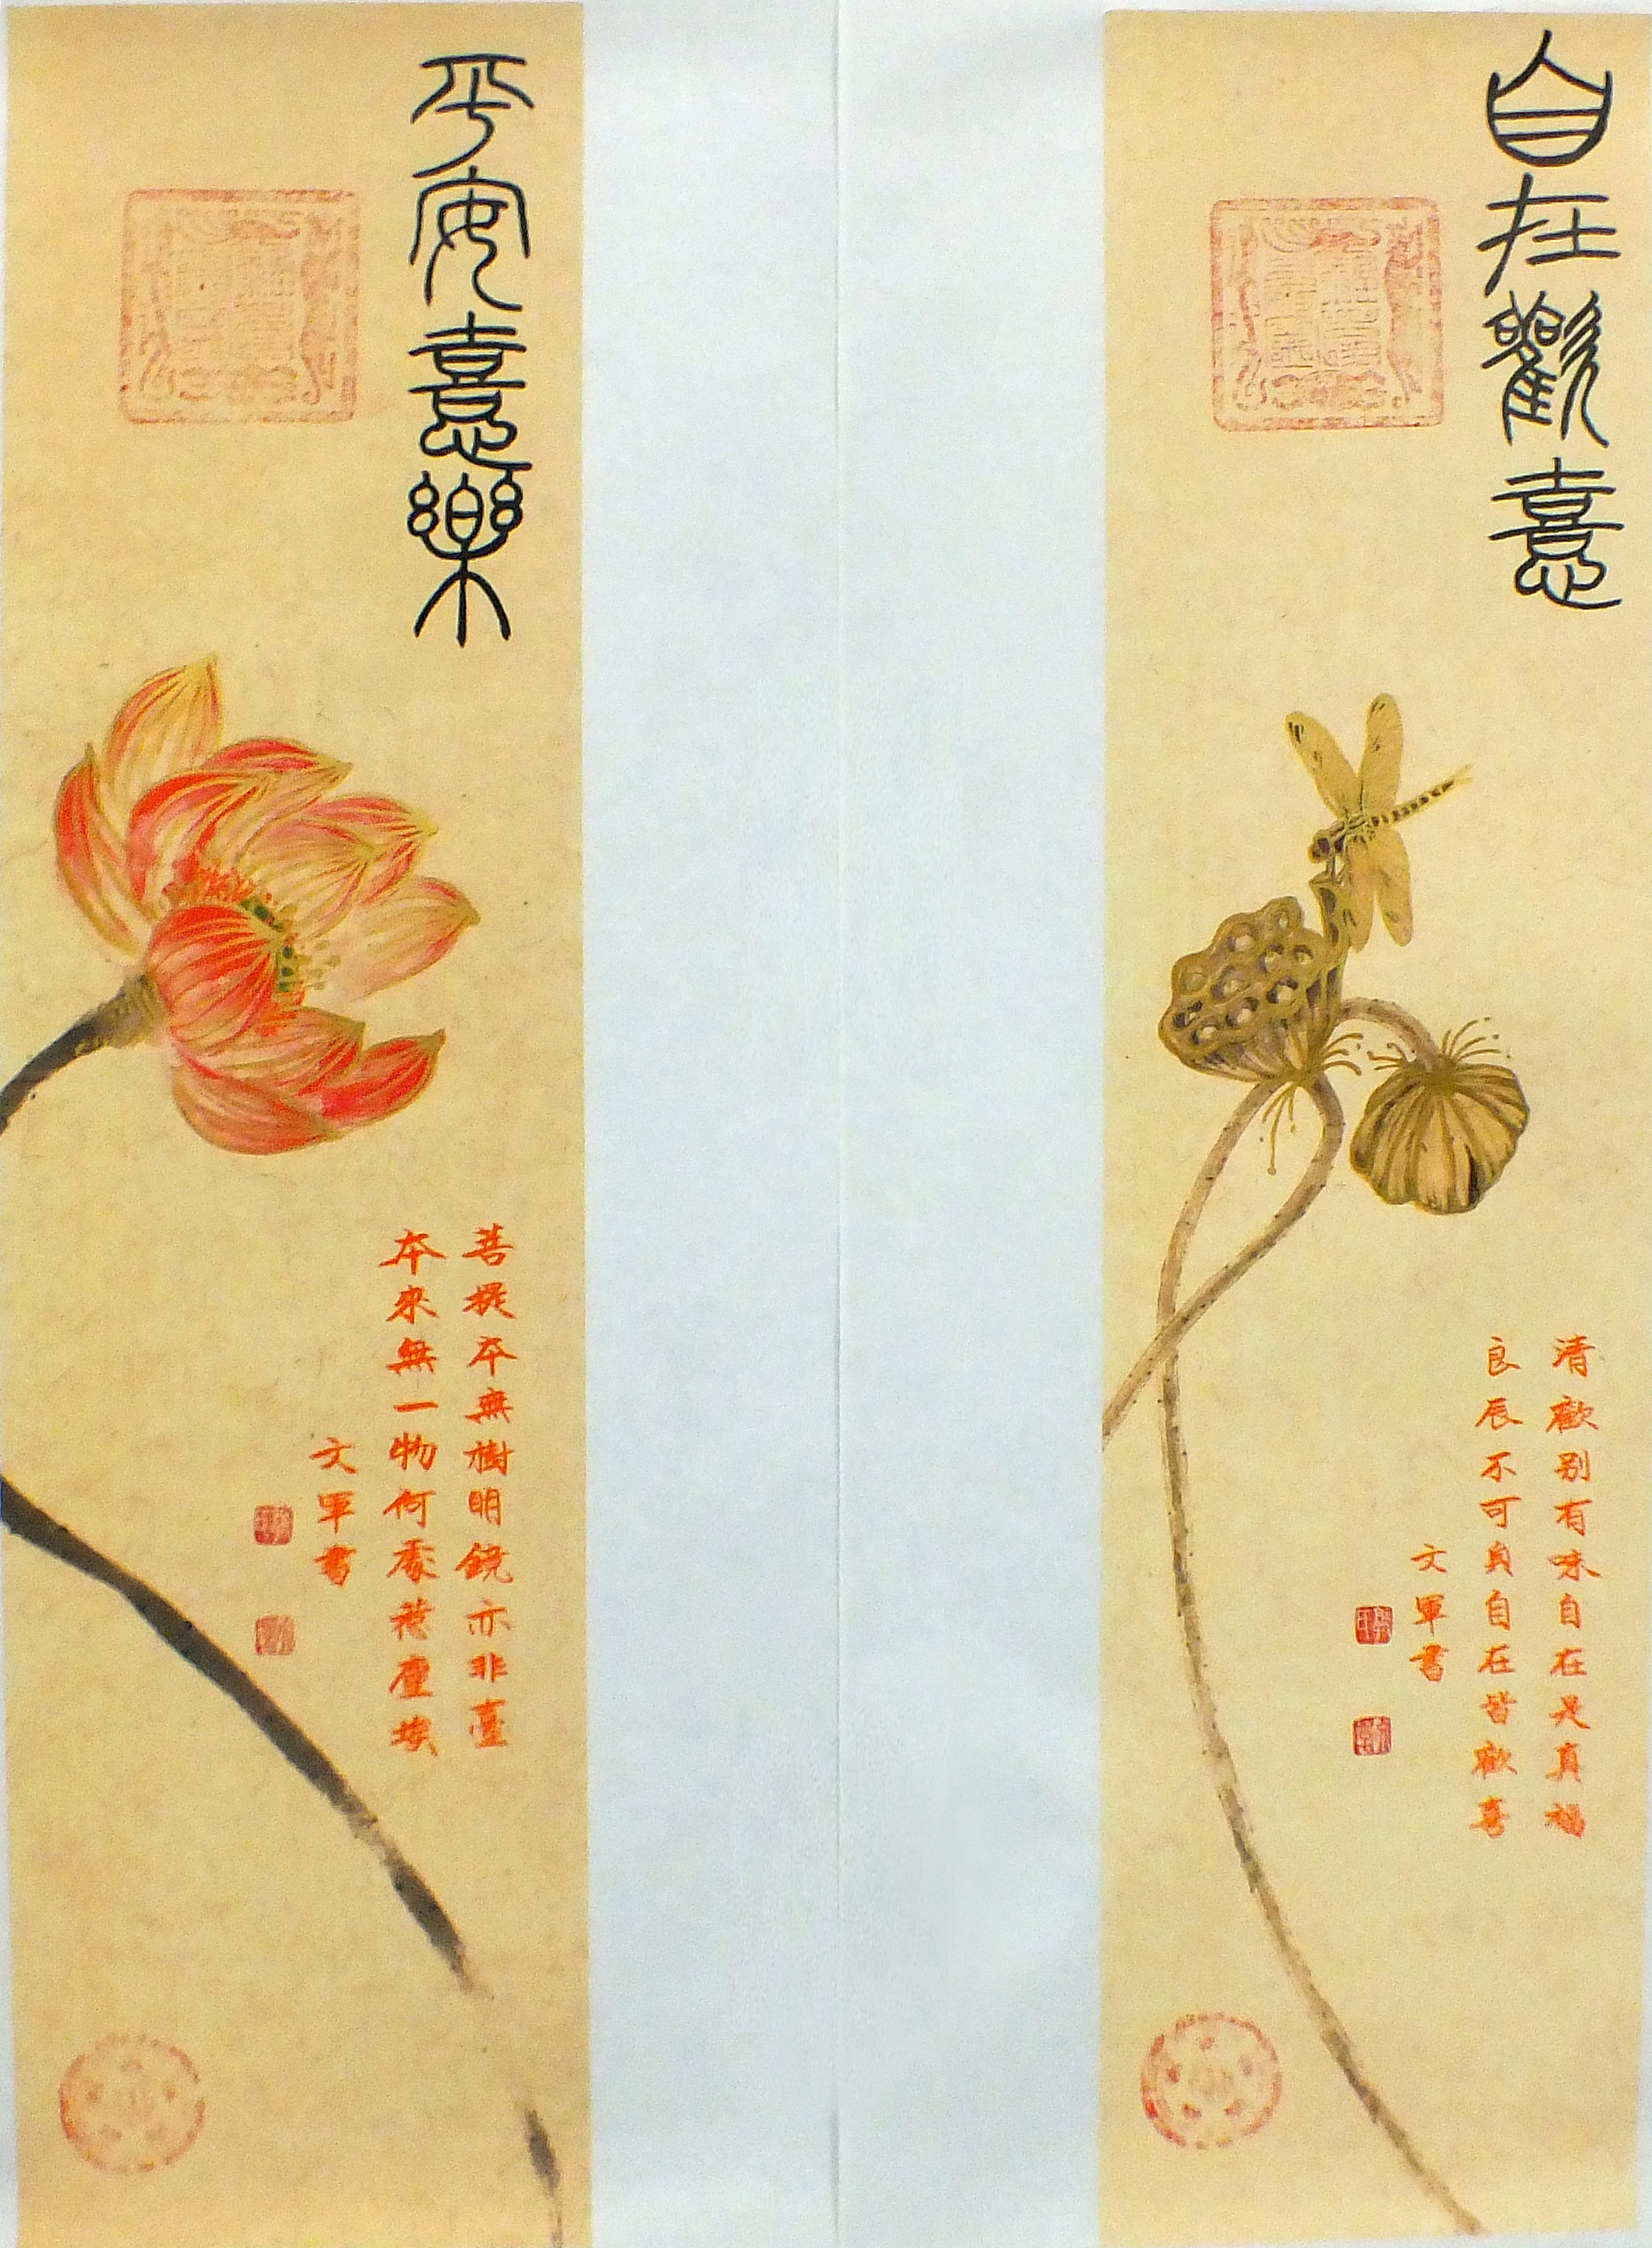 自在歡憙
清歡别有味自在是真福
良辰不可負自在皆歡喜
文軍書
平安憙樂
菩提本無樹明鏡亦非臺
本來無一物何處惹塵埃
文軍書